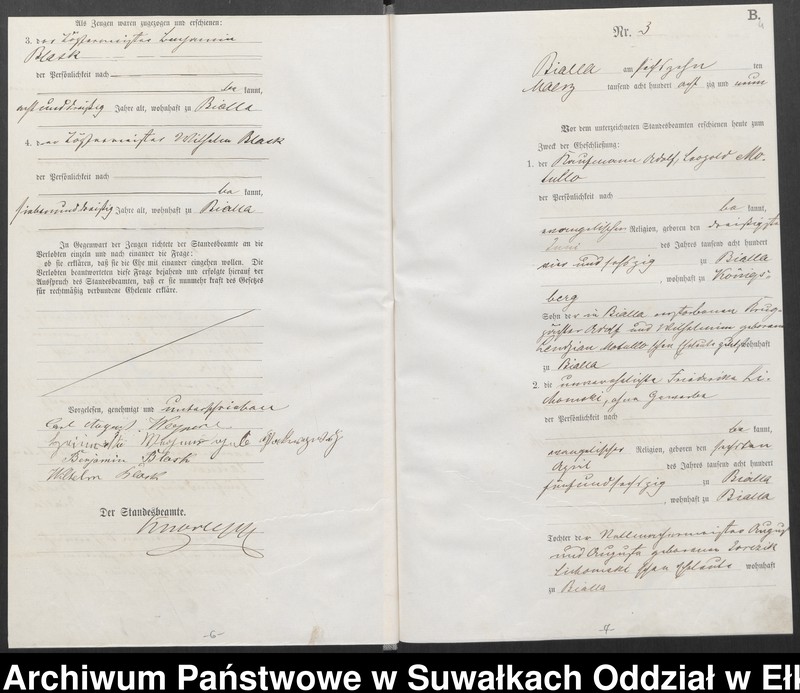 Als Zeugen waren zugezogen und erschienen:
3. der Töpfermeister Benjamin
Blask
der Persönlichkeit nach
be kannt,
acht und dreißig Jahre alt, wohnhaft zu Bialla
4. der Töpfermeister Wilhelm Blask
der Persönlichkeit nach
be kannt,
siebenunddreißig Jahre alt, wohnhaft zu Bialla
In Gegenwart der Zeugen richtete der Standesbeamte an die
Verlobten einzeln und nach einander die Frage:
ob sie erklären, daß sie die Ehe mit einander eingehen wollen. Die
Verlobten beantworteten diese Frage bejahend und erfolgte hierauf der
Ausspruch des Standesbeamten, daß er sie nunmehr kraft des Gesetzes
für rechtmäßig verbundene Eheleute erkläre.
Vorgelesen, genehmigt und unterschrieben
Carl August
Benjamin Blask
Wilhelm Blask
Der Standesbeamte.
-6-
B.
Nr. 3
Bialla am sechszehn ten
Maerz tausend acht hundert acht zig und neun
Vor dem unterzeichneten Standesbeamten erschienen heute zum
Zweck der Eheschließung:
1. der Kaufmann Adolf Leopold Mo-
tullo
der Persönlichkeit nach
be kannt,
evangelischer Religion, geboren den dreißigsten
Juni des Jahres tausend acht hundert
vier und sechszig zu Bialla
, wohnhaft zu Königs-
berg
Sohn der in Bialla verstorbenen
Adolf und Wilhelmine geborenen
Motullo'schen Eheleute wohnhaft
zu Bialla
2. die unverehelichte Friederike Li-
chomski, ohne Gewerbe
der Persönlichkeit nach
be kannt,
evangelischer Religion, geboren den sechsten
April des Jahres tausend acht hundert
fünfundsechszig zu Bialla
, wohnhaft zu Bialla
Tochter der August
und Augusta geborenen
Lichomski'schen Eheleute wohnhaft
zu Bialla
Archiwum Państwowe w Suwałkach Oddział w Ełk